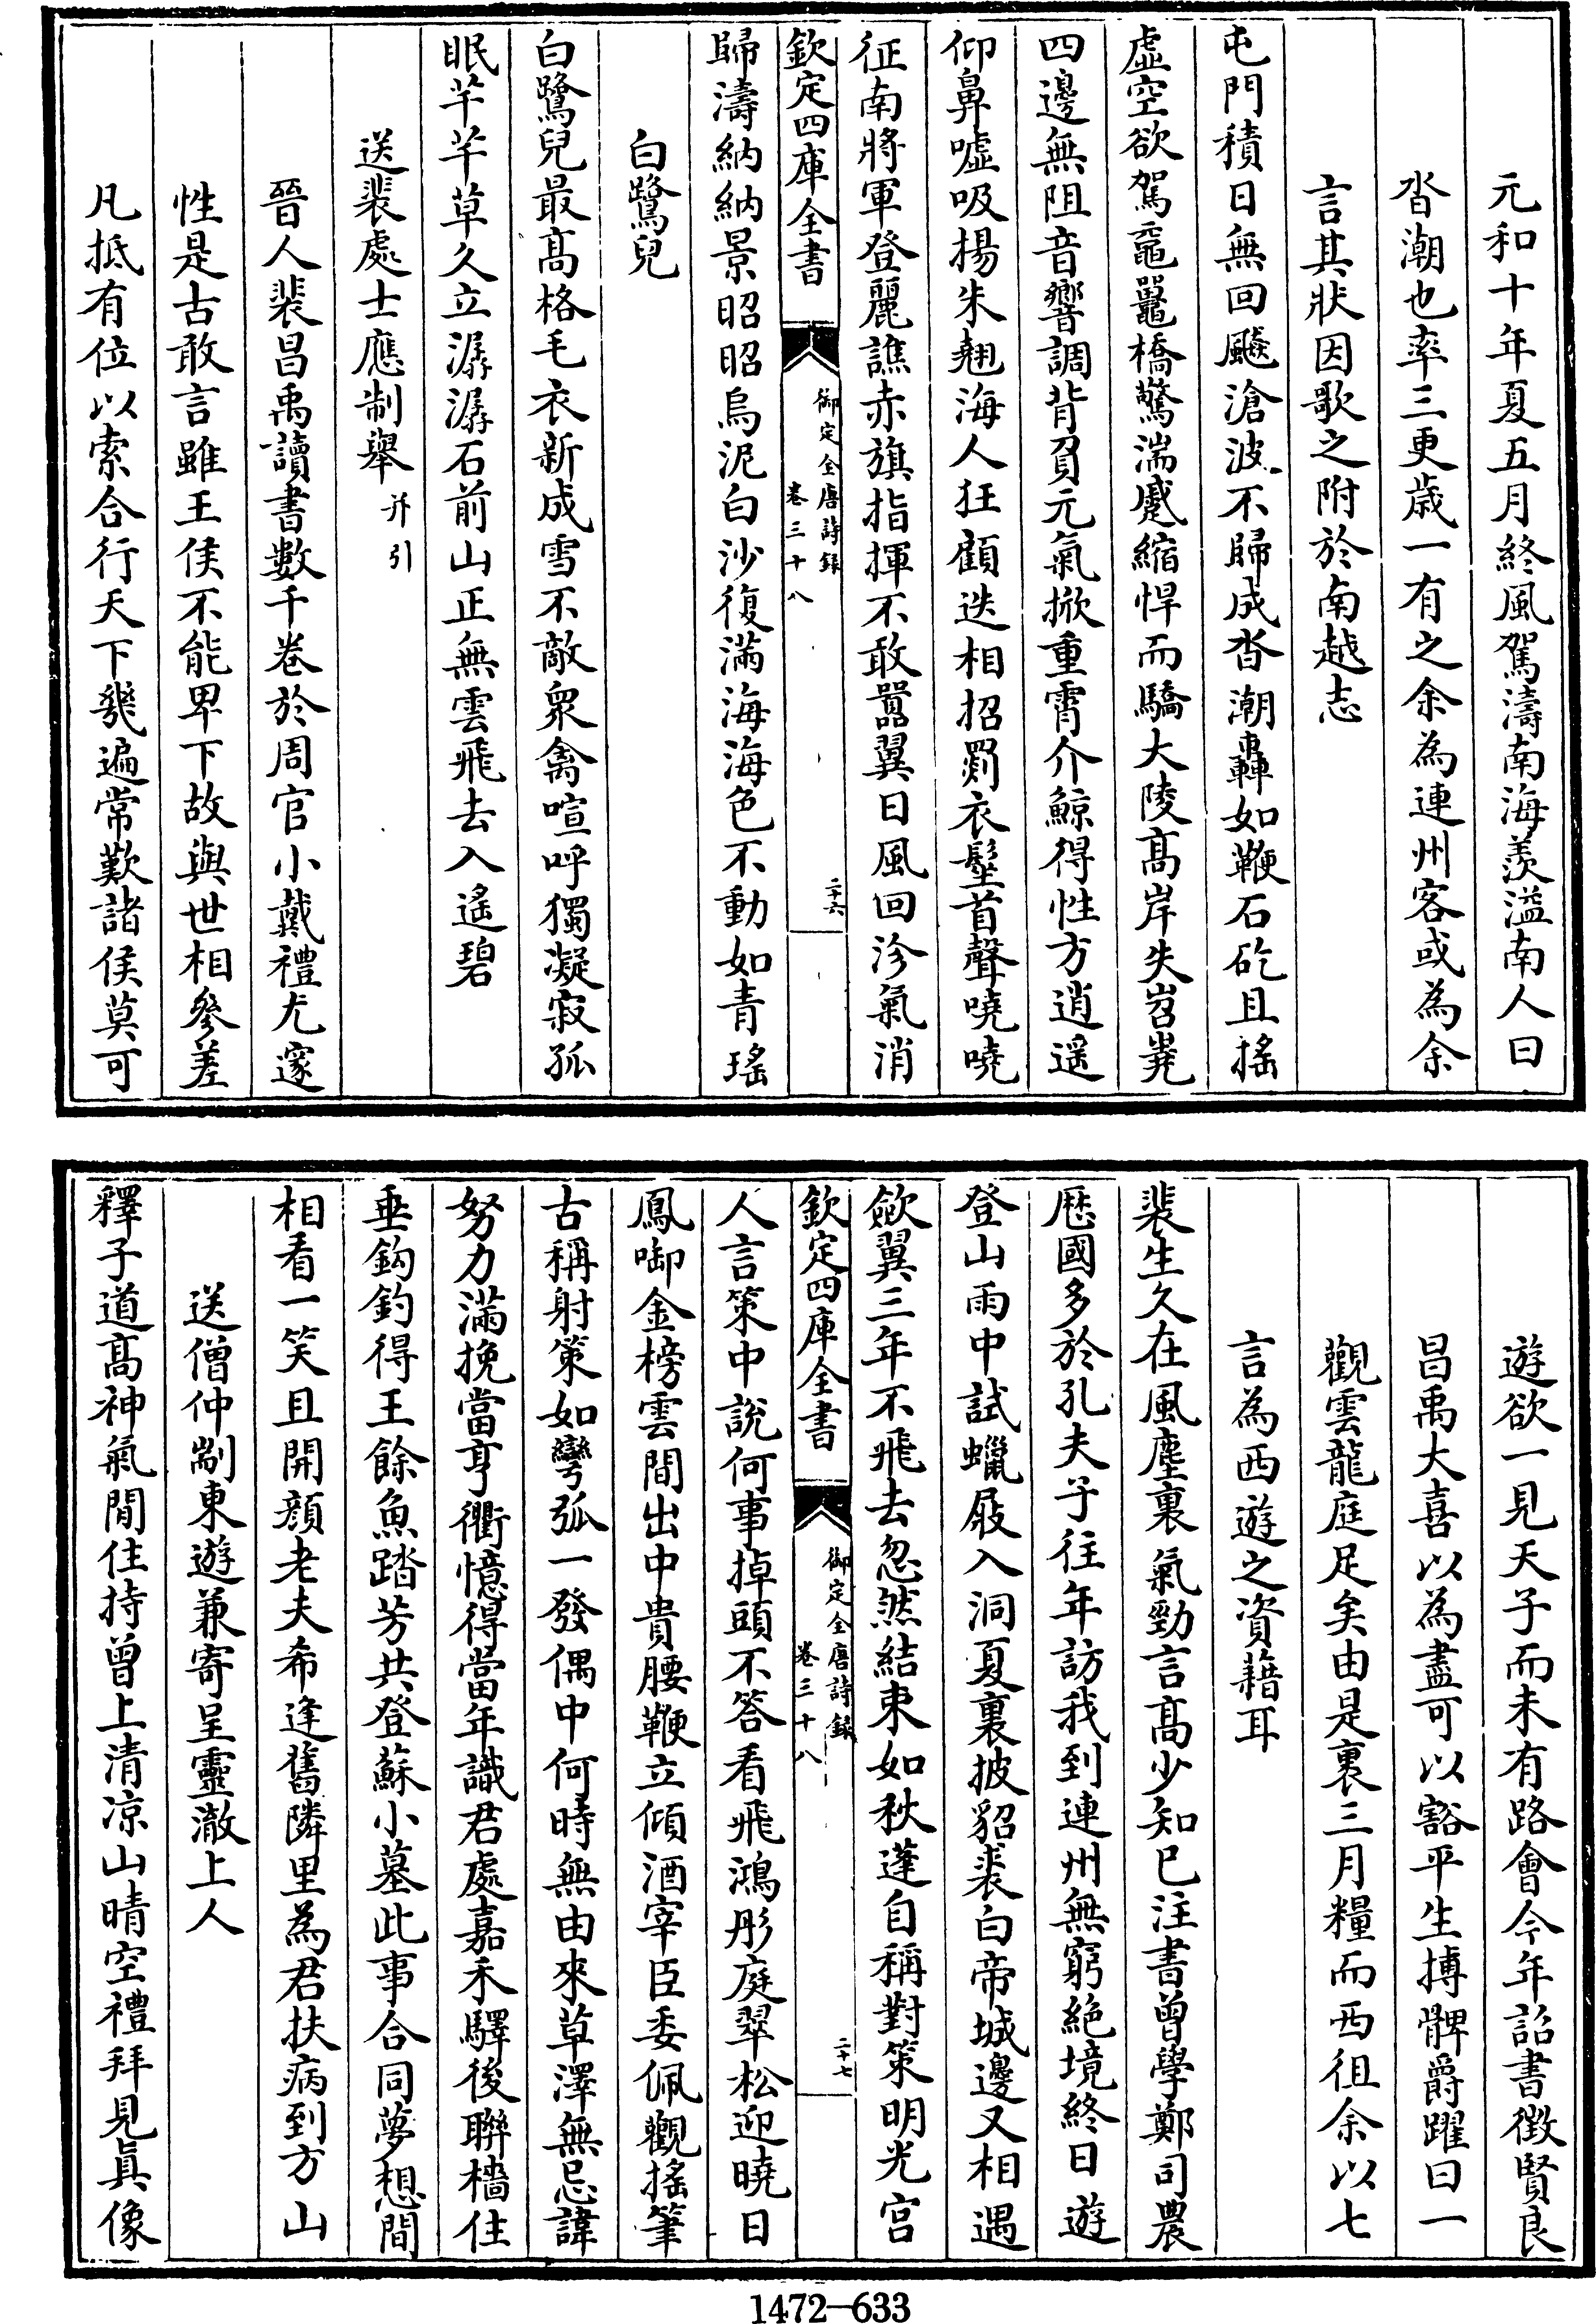 元和十年夏五月終風駕濤南海羨溢南人曰
沓潮也率三更歲一有之余為連州客或為余
言其狀因歌之附於南越志
屯門積日無回飈滄波不歸成沓潮轟如鞭石矻且搖
虛空欲駕黿鼉橋驚湍蹙縮悍而驕大陵高岸失岧嶤
四邊無阻音響調背負元氣掀重霄介鯨得性方逍遥
仰鼻噓吸揚朱翹海人狂顧迭相招罽衣髽首聲嘵嘵
征南將軍登麗譙赤旗指揮不敢囂翼日風回沴氣消
欽定四庫全書
御定全唐詩錄
卷三十八
二十六
歸濤納納景昭昭烏泥白沙復滿海海色不動如青瑤
白鷺兒
白鷺兒最高格毛衣新成雪不敵衆禽喧呼獨凝寂孤
眠芊芊草久立潺潺石前山正無雲飛去入遙碧
送裴處士應制舉并引
晉人裴昌禹讀書數千卷於周官小戴禮尤邃
性是古敢言雖王侯不能卑下故與世相參差
凡抵有位以索合行天下幾遍常歎諸侯莫可
遊欲一見天子而未有路會今年詔書徴賢良
昌禹大喜以為盡可以豁平生搏髀爵躍曰一
觀雲龍庭足矣由是裹三月糧而西徂余以七
言為西遊之資藉耳
裴生久在風塵裏氣勁言高少知已注書曾學鄭司農
厯國多於孔夫子往年訪我到連州無窮絕境終日遊
登山雨中試蠟屐入洞夏裏披貂裘白帝城邊又相遇
歛翼三年不飛去忽然結束如秋蓬自稱對策明光宮
欽定四庫全書
御定全唐詩錄
卷三十八
二十七
人言策中說何事掉頭不答看飛鴻彤庭翠松迎曉日
鳳啣金榜雲間出中貴腰鞭立傾酒宰臣委佩觀搖筆
古稱射策如彎弧一發偶中何時無由來草澤無忌諱
努力滿挽當亨衢憶得當年識君處嘉禾驛後聯檣住
垂鈎釣得王餘魚踏芳共登蘇小墓此事合同夢想間
相看一笑且開顏老夫希逢舊隣里為君扶病到方山
送僧仲剬東遊兼寄呈靈澈上人
釋子道高神氣閒住持曾上清凉山晴空禮拜見真像
1472—633